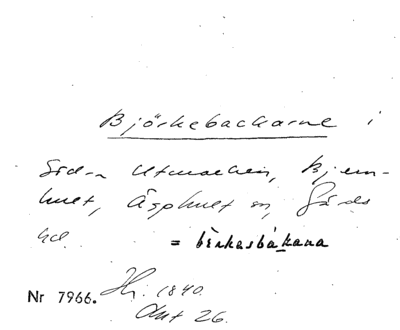 Björkebackarne i
Södra Utmarken, Bjern-
hult, Äsphult sn, Gärds
hd.
= bèrkasbákana
Nr 7966. Hr. 1840.
Akt 26.